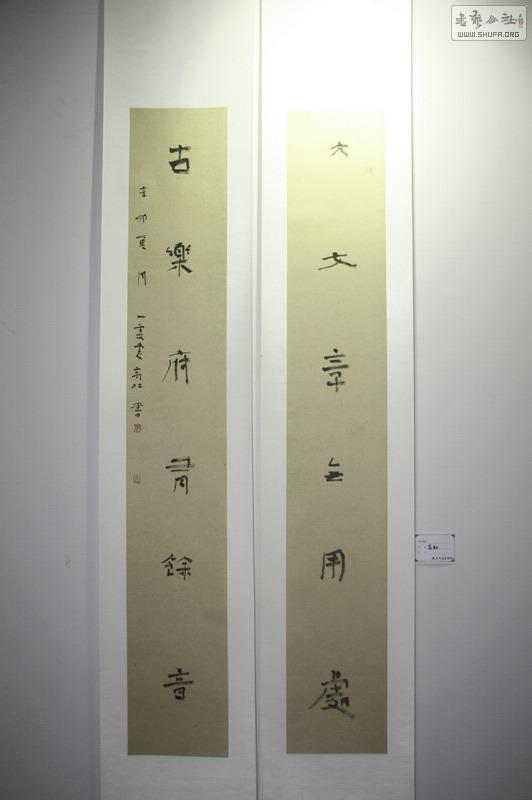 大文章亡用處
古樂府有餘音
辛卯夏月
書
書藝公社
WWW.SHUFA.ORG